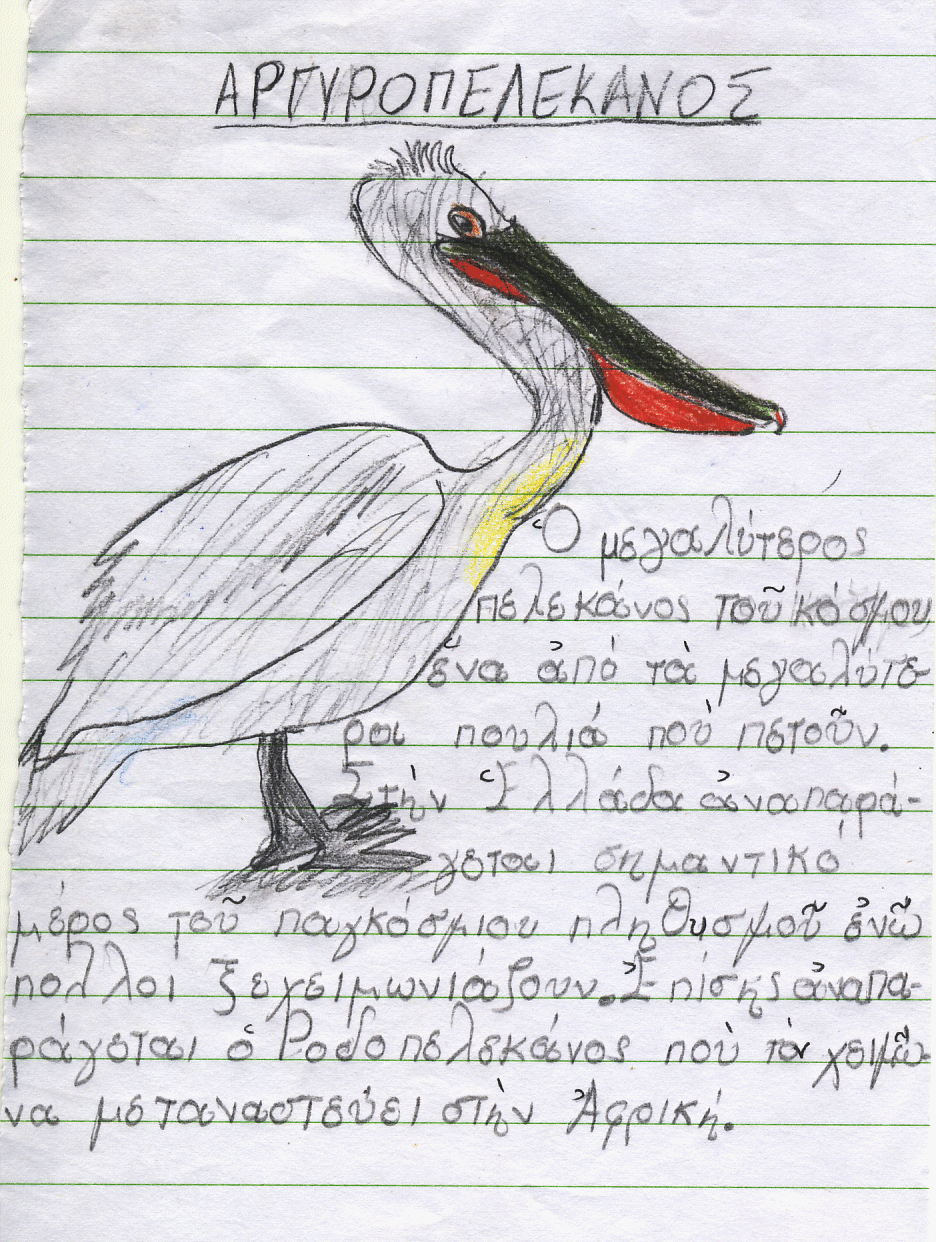 ΑΡΓΥΡΟΠΕΛΕΚΑΝΟΣ
Ὁ μεγαλύτερος
πελεκάνος τοῦ κόσμου,
ἕνα ἀπό τὰ μεγαλύτε-
ρα πουλιά ποὺ πετοῦν.
Στὴν Ἑλλάδα ἀναπαρά-
γεται σημαντικό
μέρος τοῦ παγκόσμιου πληθυσμοῦ ἐνῶ
πολλοι ξεχειμωνιάζουν. Ἐπίσης ἀναπα-
ράγεται ὁ Ροδοπελεκάνος ποὺ τὸν χειμῶ-
να μεταναστεύει στὴν Ἀφρική.